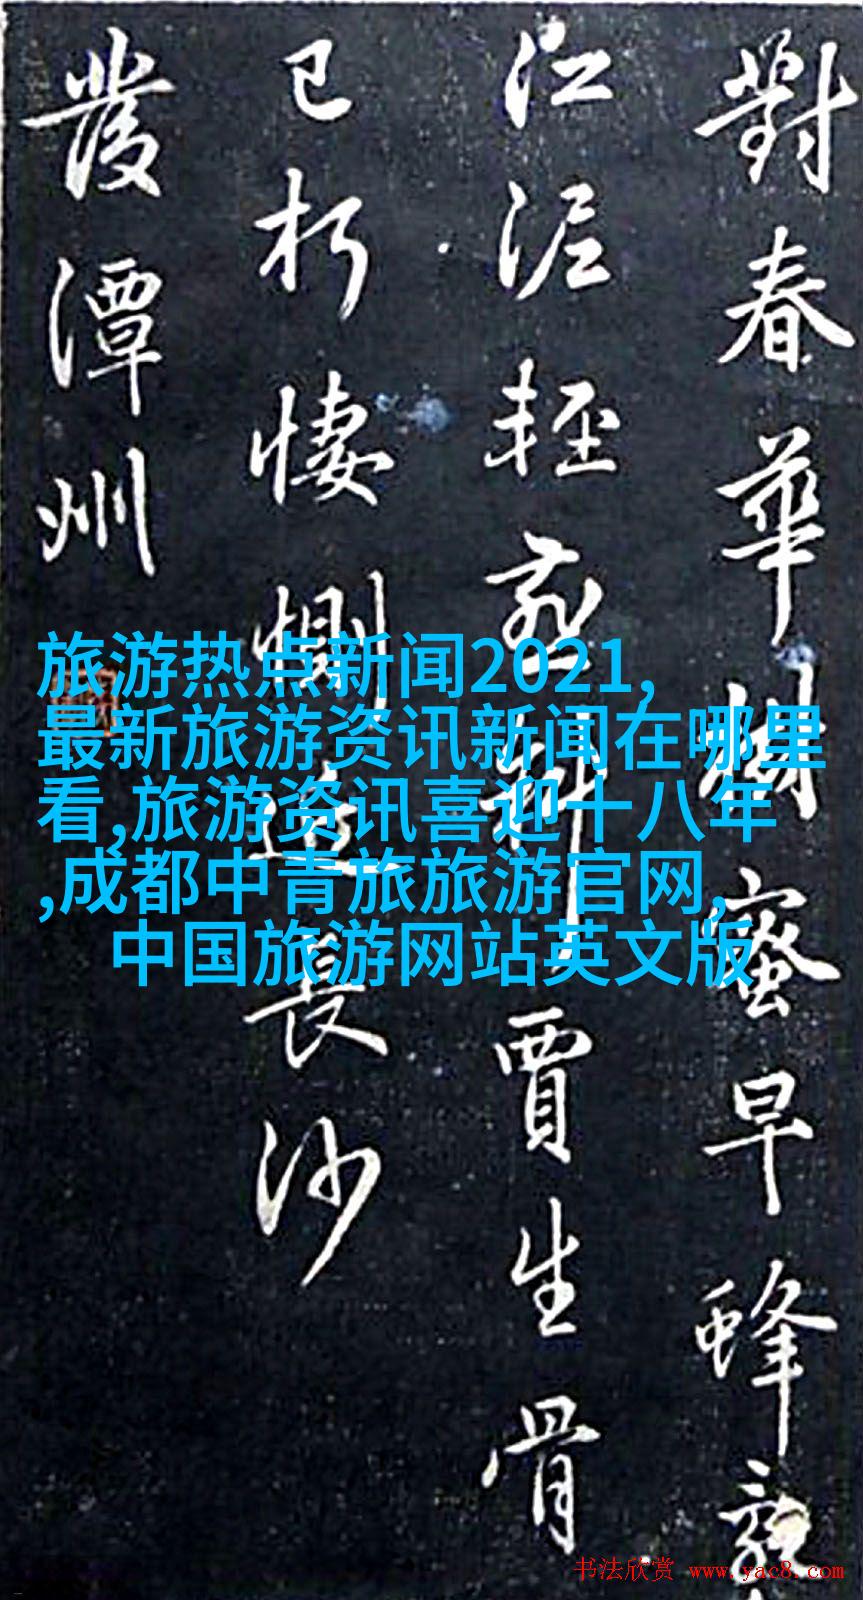 對春華樹蜜早蜂亂
江泥輕燕斜賈生骨
已朽悽惻近長沙
發潭州
旅游热点新闻2021,
最新旅游资讯新闻在哪里
看,旅游资讯喜迎十八年
,成都中青旅旅游官网,
中国旅游网站英文版
书法欣赏 www.yac8.com